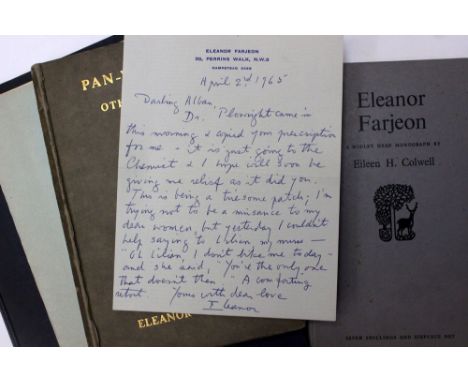 PAN-
OTH
ELEANOR
ELEANOR FARJEON
20, PERRINS WALK, N.W.3
HAMPSTEAD
April 2nd 1965
Darling Alban,
Dr. Plowright came in
this morning & copied your prescription
for me - it is just going to the
Chemist & I hope will soon be
giving me relief as it did you.
This is being a tiresome patch; I'm
trying not to be a nuisance to my
dear women, but yesterday I couldn't
help saying to Lilian, my nurse -
"Oh Lilian, I don't like me today -
and she said, "You're the only one
that doesn't then." A comforting
retort. Yours with dear love
Eleanor
Eleanor
Farjeon
A BODLEY HEAD MONOGRAPH BY
Eileen H. Colwell
SEVEN SHILLINGS AND SIXPENCE NET